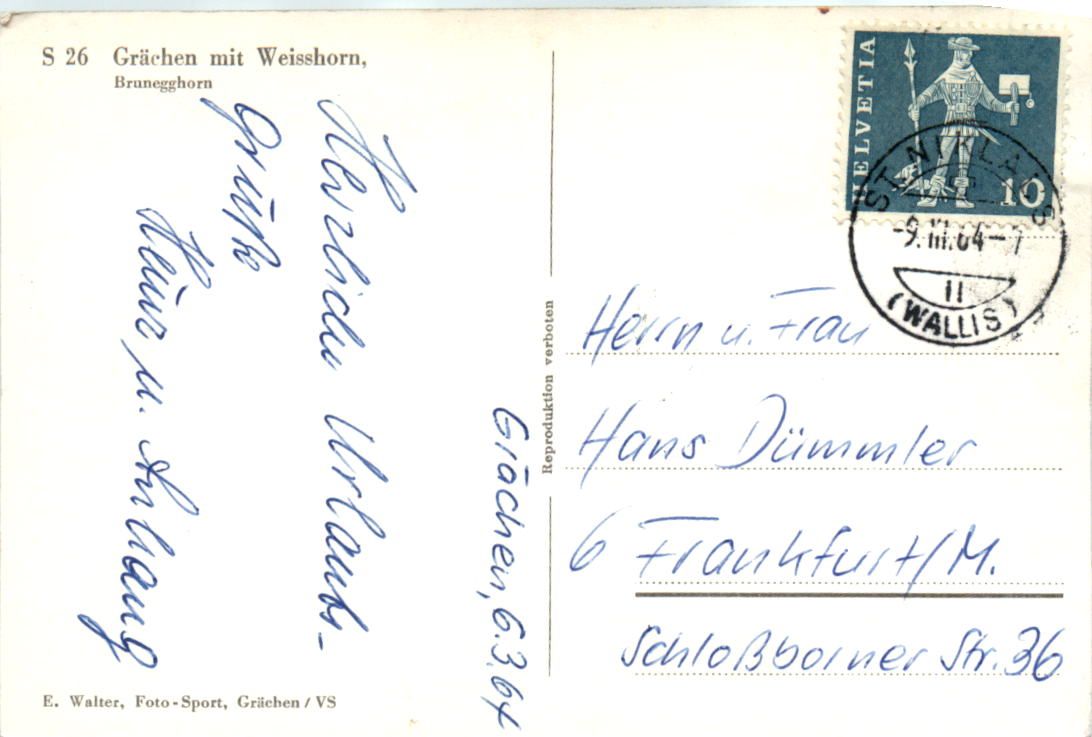 S 26 Grächen mit Weisshorn,
Brunegghorn
Grächen, 6.3.64
Herzliche Urlaubs-
Grüße
Heinz u. Anhang
E. Walter, Foto-Sport, Grächen / VS
Reproduktion verboten
HELVETIA
10
ST. NIKLAUS
-9.III.64-7
II
(WALLIS)
Herrn u. Frau
Hans Dümmler
6 Frankfurt/M.
Schloßborner Str. 36